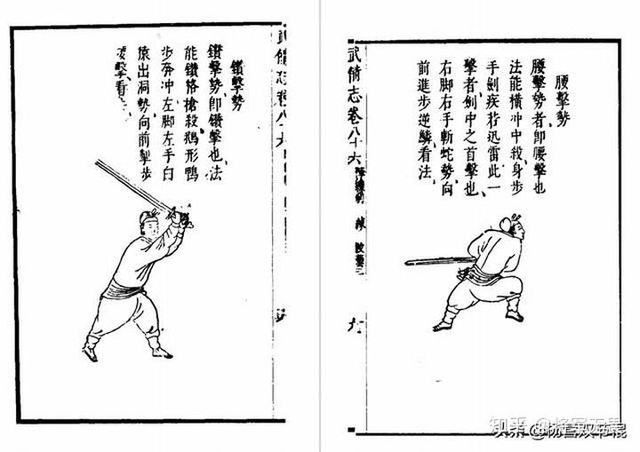 腰擊勢
腰擊勢者卽腰擊也
法能橫冲中殺身步
手劍疾若迅雷此一
擊者劍中之首擊也
右脚右手斬蛇勢向
前進步逆鱗看法
武備志卷八十六 陣練制 練 教藝三 九
鑽擊勢
鑽擊勢卽鑽擊也法
能鑽格搶殺鵝形鴨
步奔冲左脚左手白
猿出洞勢向前掣步
腰擊看法
武備志卷八十六
知乎
头条